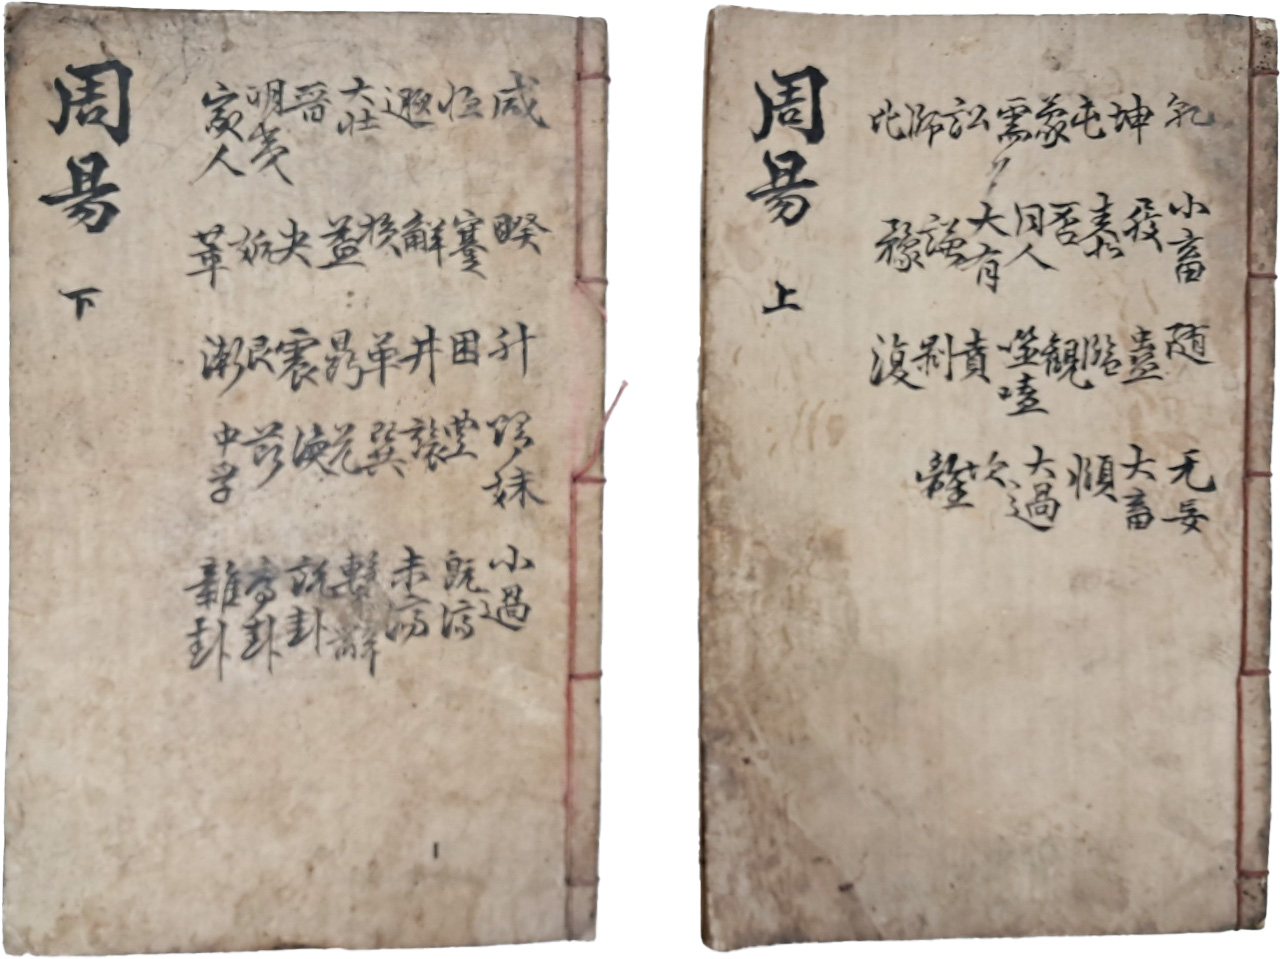 周易 上
乾 坤 屯 蒙 需 訟 師 比
小畜 履 泰 否 同人 大有 謙 豫
随 蠱 臨 觀 噬嗑 賁 剥 復
无妄 大畜 頤 大過 坎 離
周易 下
咸 恒 遯 大壯 晉 明夷 家人
睽 蹇 解 損 益 夬 姤 萃
升 困 井 革 鼎 震 艮 漸
歸妹 豊 旅 巽 兌 渙 節 中孚
小過 既濟 未濟 繫辭 說卦 序卦 雜卦